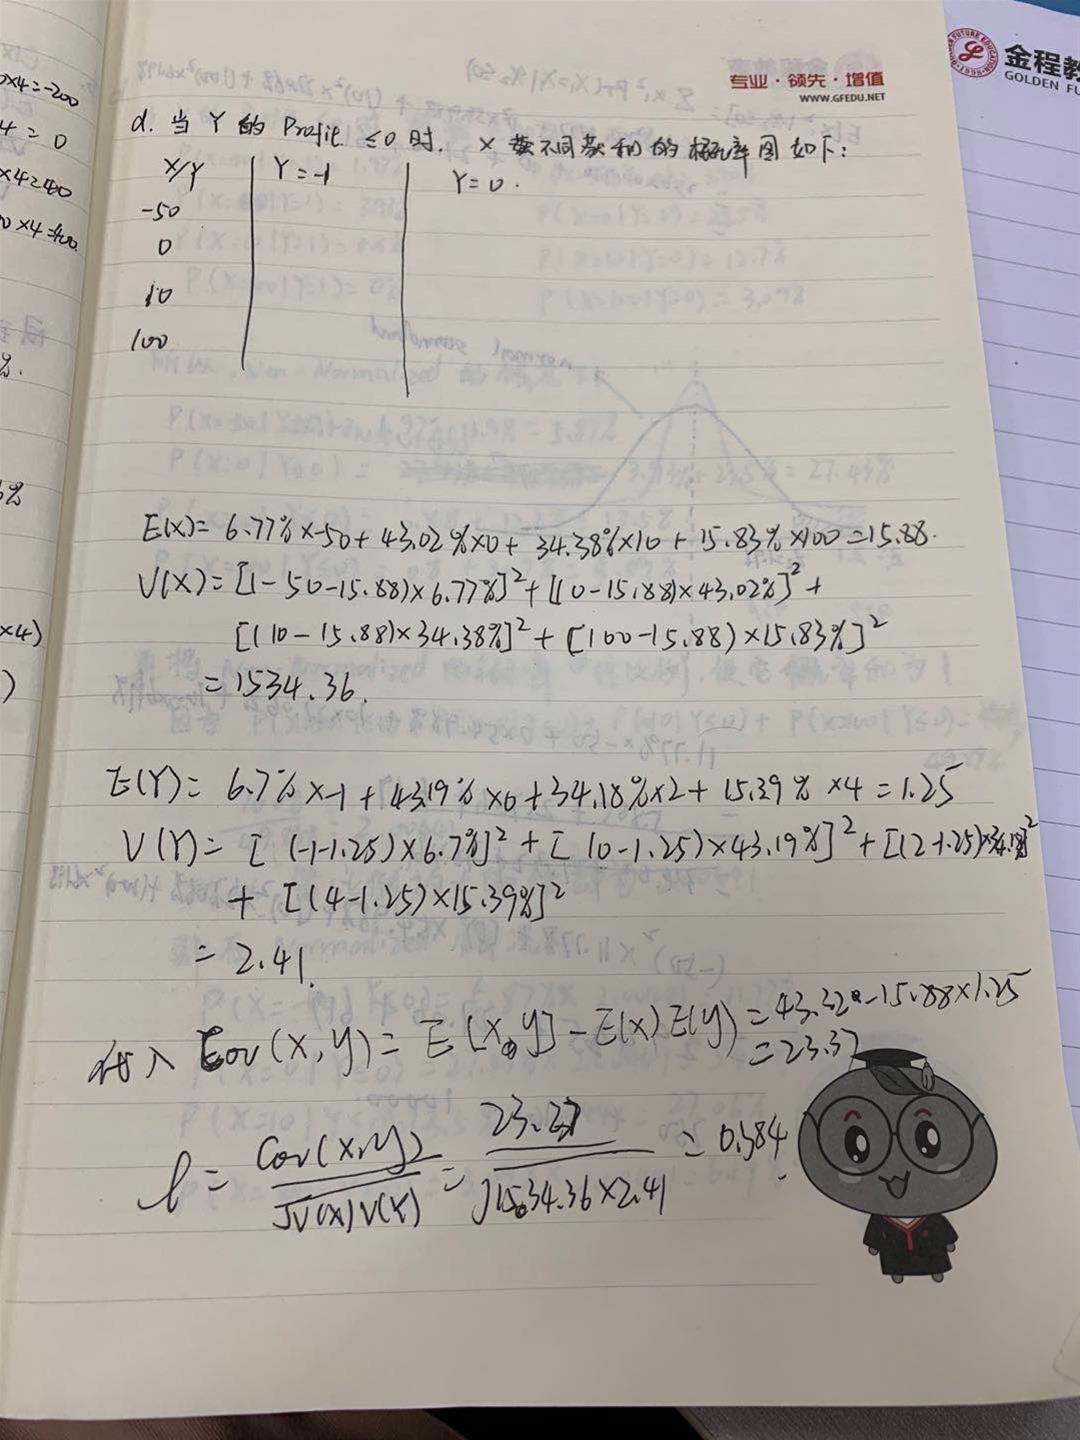 金程教
GOLDEN FU
专业·领先·增值
WWW.GFEDU.NET
0×4=-200
4=0
×4=40
0×4=400
%.
%
×4)
)
d. 当 Y 的 Profit ≤0 时. X 获不同获利的概率图如下:
X/Y Y=-1 Y=0.
-50
0
10
100
E(X)= 6.77%×-50+43.02%×0+34.38%×10+15.83%×100=15.88.
V(X)= [(-50-15.88)×6.77%]²+[(0-15.88)×43.02%]²+
[(10-15.88)×34.38%]²+[100-15.88)×15.83%]²
=1534.36.
E(Y)= 6.7%×-1+43.19%×0+34.18%×2+15.39%×4=1.25
V(Y)= [(-1-1.25)×6.7%]²+[(0-1.25)×43.19%]²+[(2-1.25)×34.18%]²
+[(4-1.25)×15.39%]²
=2.41.
代入 Cov(X,y)= E[X,y]-E(x)E(y)=43.32-15.88×1.25
=23.37
ℓ= Cov(x,y) / √V(X)V(Y) = 23.37 / √1534.36×2.41 = 0.384.